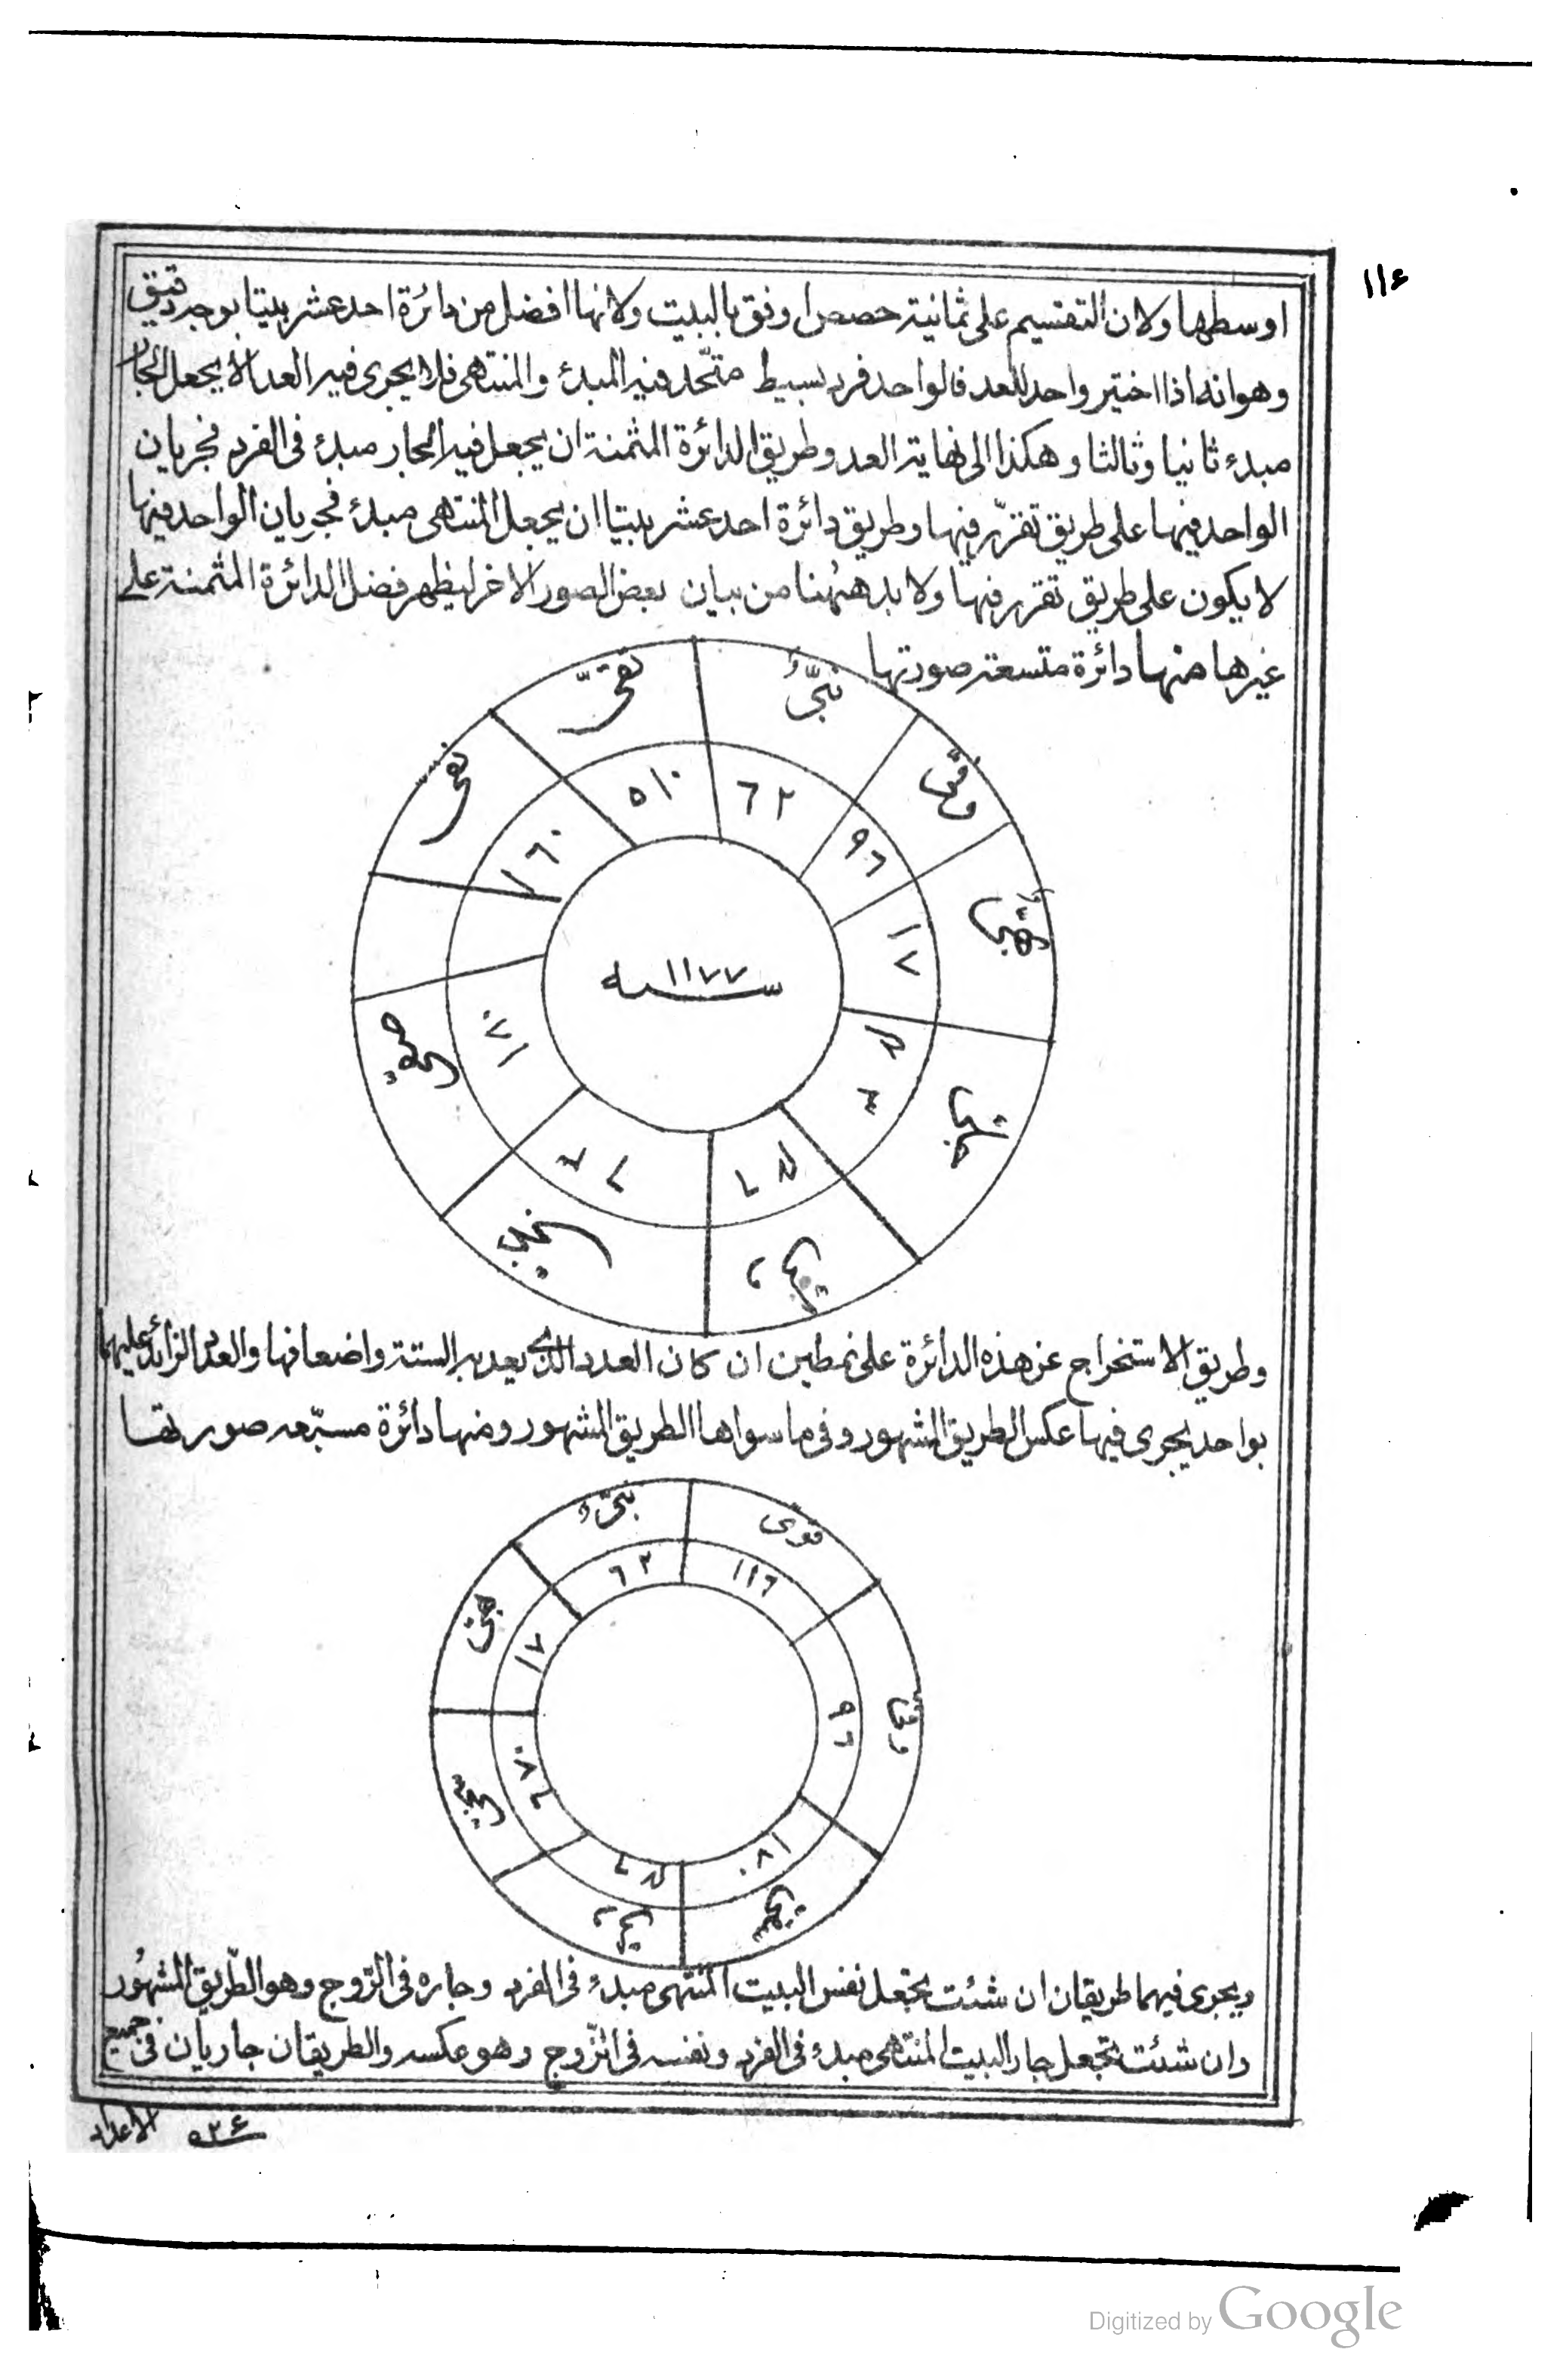 ١١٤
اوسطها ولان التقسيم على ثمانية حصص اوفق بالبيت ولانها افضل من دائرة احد عشر بيتا بوجه دقيق
وهوانه اذا اختير واحد للعد فالواحد فرد بسيط متّحد فيه المبدء والمنتهى فلا يجرى فيه العد الا يجعل الجار
مبدء ثانيا وثالثا وهكذا الى نهاية العد وطريق الدائرة المثمنة ان يجعل فيه الجار مبدء فى الفرد فجريان
الواحد فيها على طريق تقرّر فيها وطريق دائرة احد عشر بيتا ان يجعل المنتهى مبدء فجريان الواحد فيها
لا يكون على طريق تقرر فيها ولا بد ههُنا من بيان بعض الصور الاخر ليظهر فضل الدائرة المثمنة على
غيرها منها دائرة متسعة صورتها
نبىّءُ
٦٢
وقى
٩٦
١٧
نقىّ
٥١٠
نقى
١٦٠
١٨٠
١١٧٧ سنه
وطريق الاستخراج عن هذه الدائرة على نمطين ان كان العدد الذى يعد به الستة واضعافها والعدد الزائد عليهما
بواحد يجرى فيها عكس الطريق المشهور وفى ما سواها الطريق المشهور ومنها دائرة مسبّعه صورتها
قوى
١١٦
٩٦
١٨٠
١٧
٦٢
ويجرى فيهما طريقان ان شئت تجعل نفس البيت المنتهى مبدء فى الفرد وجاره فى الزّوج وهو الطّريق المشهُور
وان شئت تجعل جار البيت المنتهى مبدء فى الفرد ونفسه فى الزّوج وهو عكسه والطريقان جاريان فى جميع
الاعداد
Digitized by Google